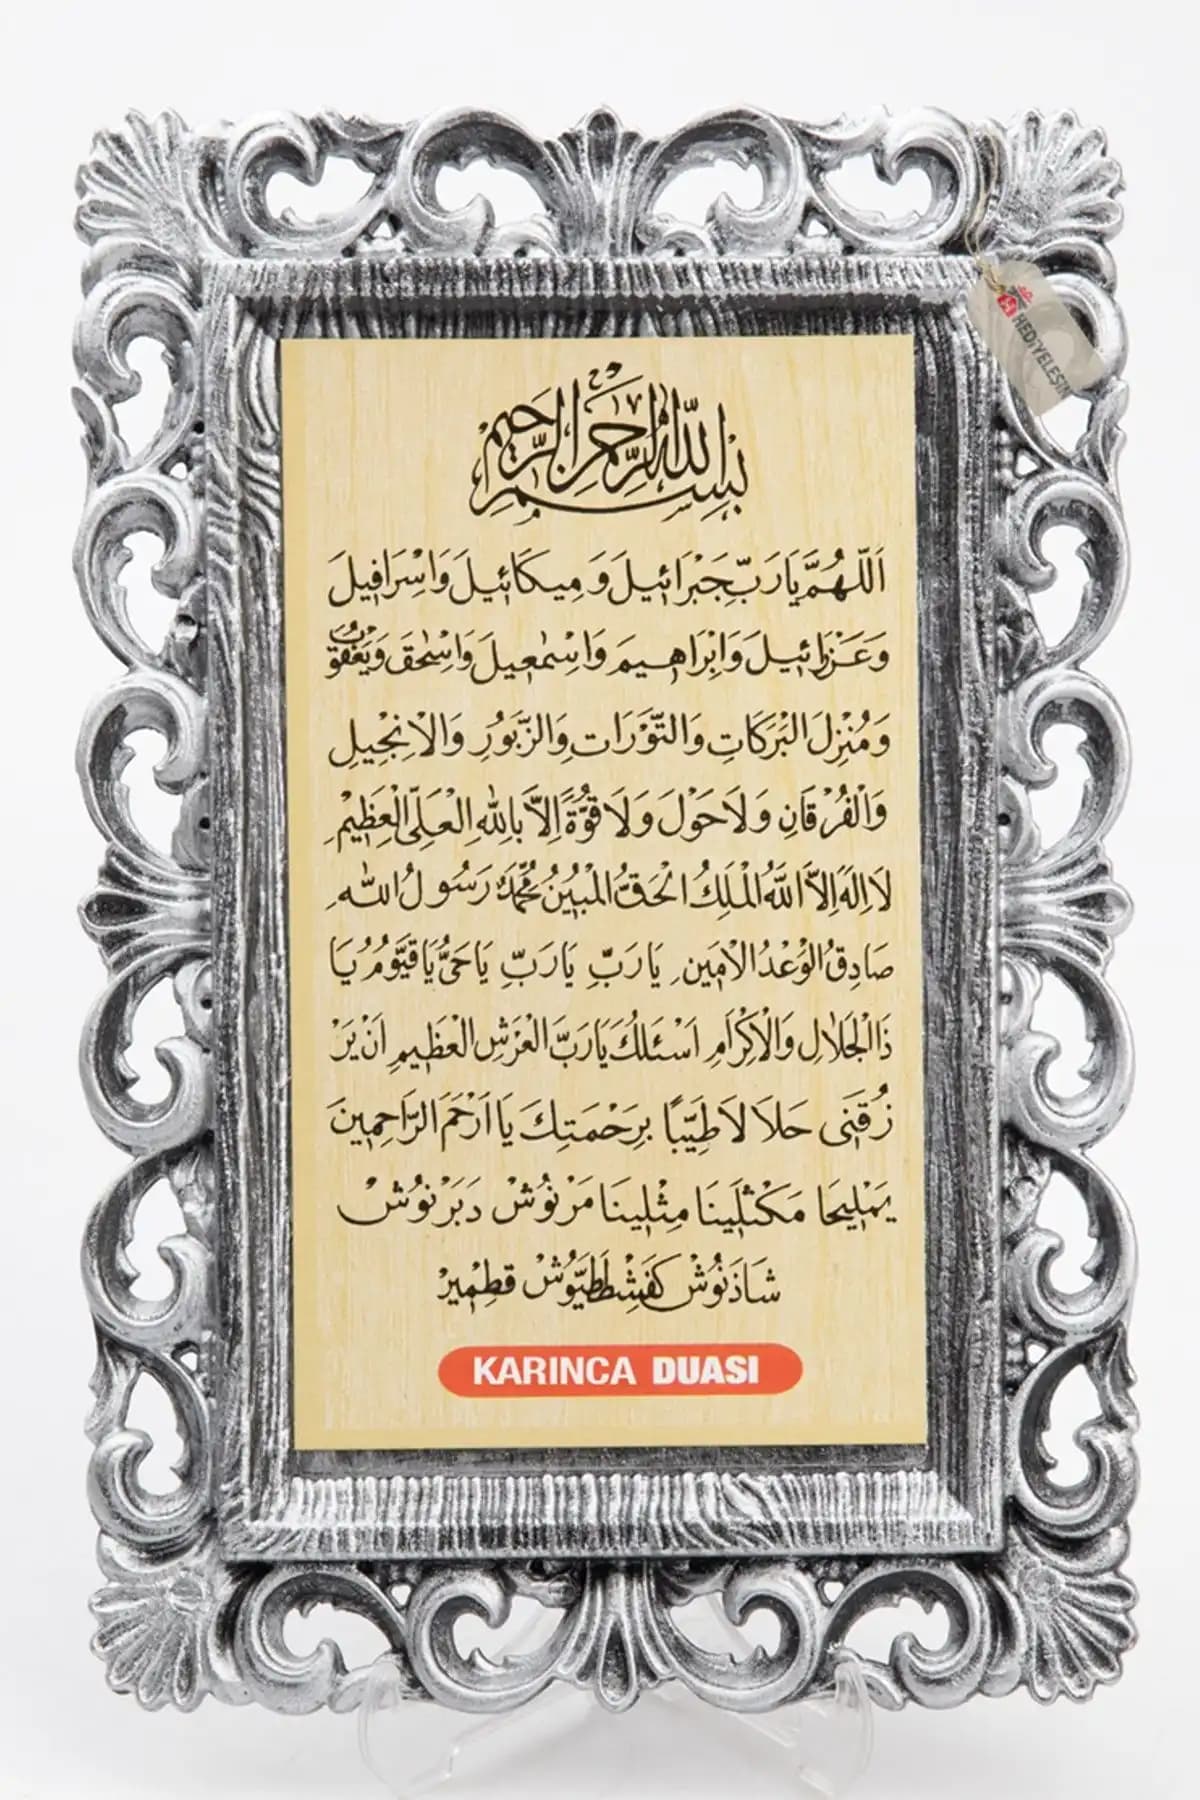 بسم الله الرحمن الرحيم
اَللّٰهُمَّ يَا رَبِّ جَبْرَائِيلَ وَ مِيكَائِيلَ وَاِسْرَافِيلَ
وَ عَزْرَائِيلَ وَاِبْرَاهِيمَ وَاِسْمٰعِيلَ وَاِسْحٰقَ وَيَعْقُوبَ
وَ مُنْزِلَ الْبَرَكَاتِ وَالتَّوْرَاتِ وَالزَّبُورِ وَالْاِنْجِيلِ
وَالْفُرْقَانِ وَلَا حَوْلَ وَلَا قُوَّةَ اِلَّا بِاللهِ الْعَلِىِّ الْعَظِيْمِ
لَا اِلٰهَ اِلَّا اللهُ الْمَلِكُ الْحَقُّ الْمُبِيْنُ مُحَمَّدٌ رَسُولُ اللهِ
صَادِقُ الْوَعْدُ الْاَمِينِ يَا رَبِّ يَا رَبِّ يَا حَىُّ يَا قَيُّومُ يَا
ذَالْجَلَالِ وَالْاِكْرَامِ اَسْئَلُكَ يَا رَبَّ الْعَرْشِ الْعَظِيمِ اَنْ يَرْ
زُقَنِى حَلَا لَا طَيِّبًا بِرَحْمَتِكَ يَا اَرْحَمَ الرَّاحِمِينَ
يَمْلِيحَا مَكْثَلِينَا مِثْلِينَا مَرْنُوشْ دَبَرْنُوشْ
شَاذَنُوشْ كَفَشْطَطَيُّوشْ قِطْمِيرْ
KARINCA DUASI
HEDİYELEŞİN